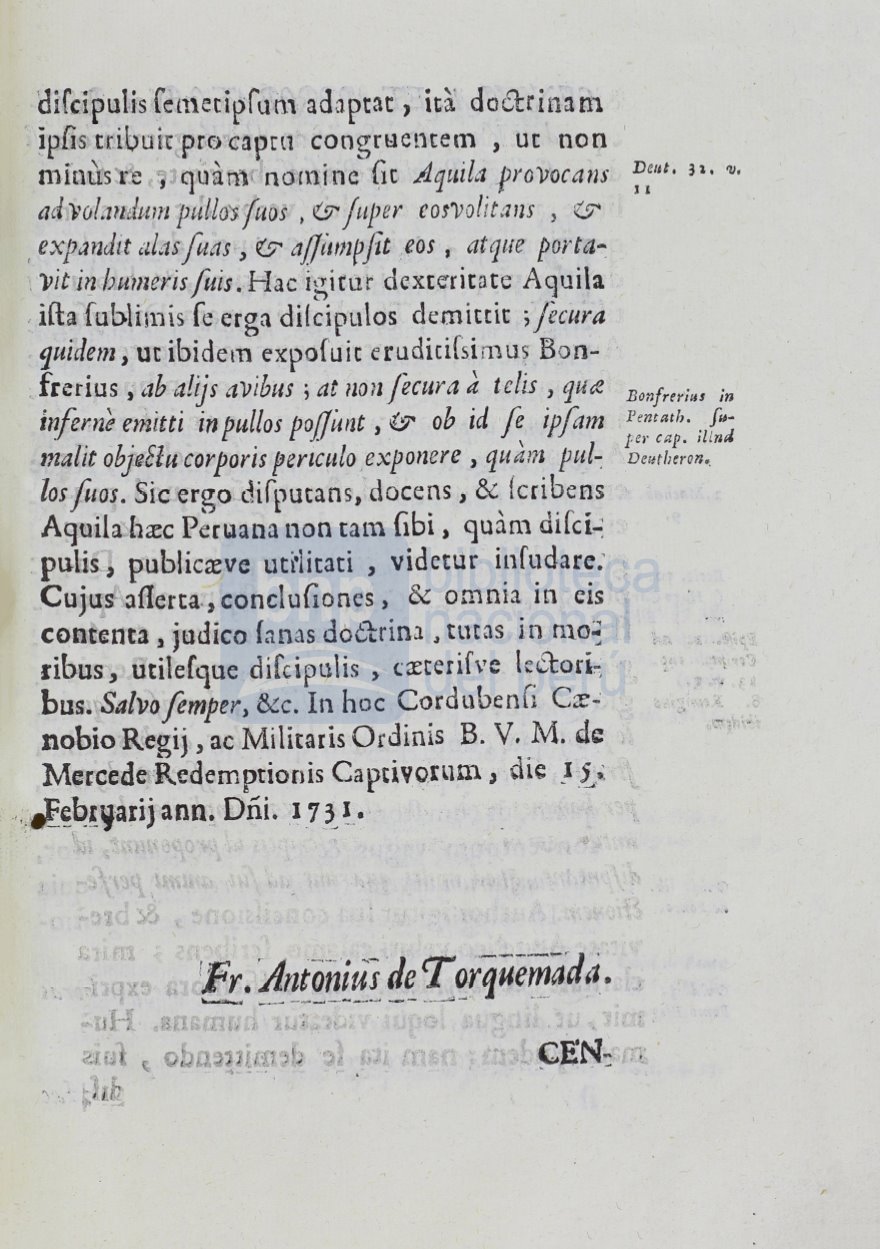 diſcipulis ſemetipſum adaptat, ità doctrinam
ipſis tribuit pro captu congruentem, ut non
minùs re, quàm nomine ſit Aquila provocans
ad volandum pullos ſuos, & ſuper eos volitans, &
expandit alas ſuas, & aſſumpſit eos, atque porta-
vit in humeris ſuis. Hac igitur dexteritate Aquila
iſta ſublimis ſe erga diſcipulos demittit; ſecura
quidem, ut ibidem expoſuit eruditiſsimus Bon-
frerius, ab alijs avibus; at non ſecura à telis, quæ
infernè emitti in pullos poſſunt, & ob id ſe ipſam
malit objectu corporis periculo exponere, quàm pul-
los ſuos. Sic ergo diſputans, docens, & ſcribens
Aquila hæc Peruana non tam ſibi, quàm diſci-
pulis, publicæve utilitati, videtur inſudare.
Cujus aſſerta, concluſiones, & omnia in eis
contenta, judico ſanas doctrina, tutas in mo-
ribus, utileſque diſcipulis, cæteriſve lectori-
bus. Salvo ſemper, &c. In hoc Cordubenſi Cæ-
nobio Regij, ac Militaris Ordinis B. V. M. de
Mercede Redemptionis Captivorum, die 15.
Februarij ann. Dñi. 1731.
Deut. 32. v.
11
Bonfrerius in
Pentath. ſu-
per cap. illud
Deutheron.
Fr. Antonius de Torquemada.
CEN-
biblioteca
nacional
del perú